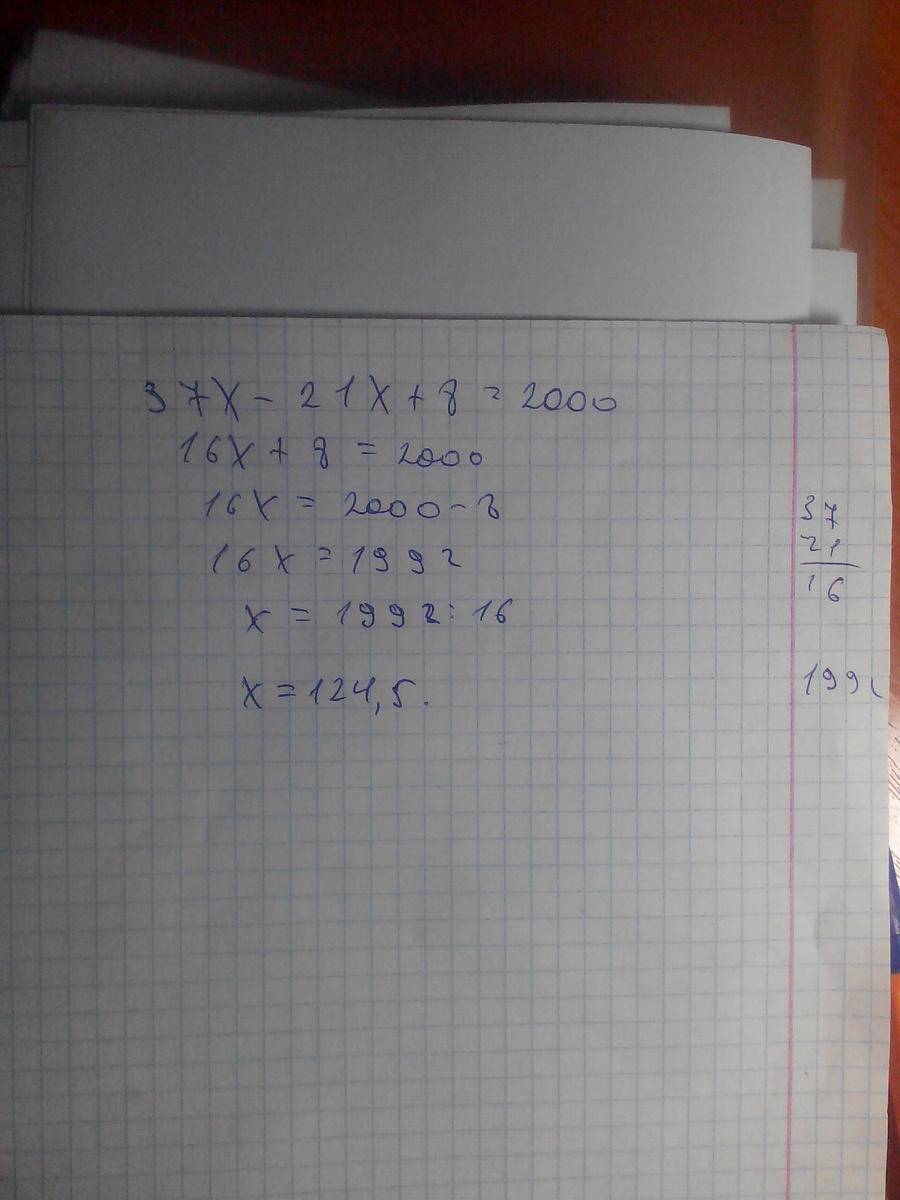 37x - 21x + 8 = 2000
16x + 8 = 2000
16x = 2000 - 8
16x = 1992
x = 1992 : 16
x = 124,5.
37
21
16
199